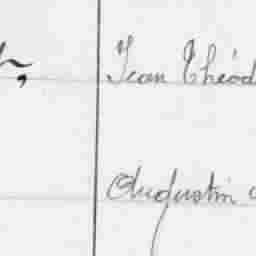 Jean Théod
Augustin